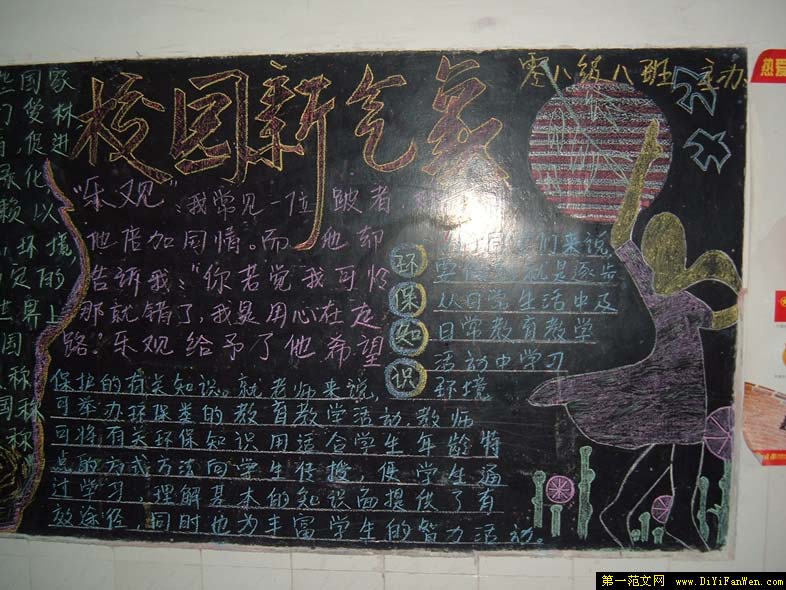 校园新气象
零八级八班 主办
热爱
国家
们 爱 林
促进
化
赖 以
环境
定的
世界上
国
称
"乐观":我常见一位 跛者
他倍加同情。而 他却
告诉我:"你若觉我可怜
那就错了,我是用心在走
路"乐观给予了他希望
环保知识
同学们来说
就是逐步
从日常生活中及
日常教育教学
活动中学习
环境
保护的有关知识。就老师来说,
可举办环保类的教育教学活动,教师
可将有关环保知识用适合学生年龄特
点的方式方法向学生传授,使学生通
过学习,理解基本的知识面提供了有
效途径,同时也为丰富学生的智力活动。
第一范文网 www.DiYiFanWen.com